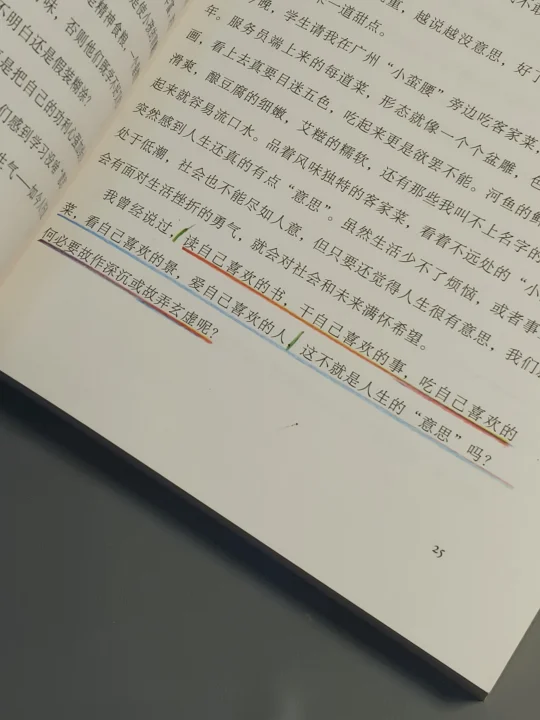 精神食粮，一
味，否则他们医学不
不明白还是假装糊涂？
是把自己的功利心强加
们感到学习没
生气——如今
重，越说越没意思，好了
不一道甜点。
晚，学生请我在广州“小蛮腰”旁边吃客家菜，
年。服务员端上来的每道菜，形态就像一个个盆雕，色
画，看上去真要目迷五色，吃起来更是欲罢不能。河鱼的鲜
滑爽，酿豆腐的细嫩，艾糍的糯软，还有那些我叫不上名字的
起来就容易流口水。品着风味独特的客家菜，看着不远处的“小
突然感到人生还真的有点“意思”。虽然生活少不了烦恼，或者事
处于低潮，社会也不能尽如人意，但只要还觉得人生很有意思，我们
会有面对生活挫折的勇气，就会对社会和未来满怀希望。
我曾经说过，读自己喜欢的书，干自己喜欢的事，吃自己喜欢的
菜，看自己喜欢的景，爱自己喜欢的人，这不就是人生的“意思”吗？
何必要故作深沉或故弄玄虚呢？
25